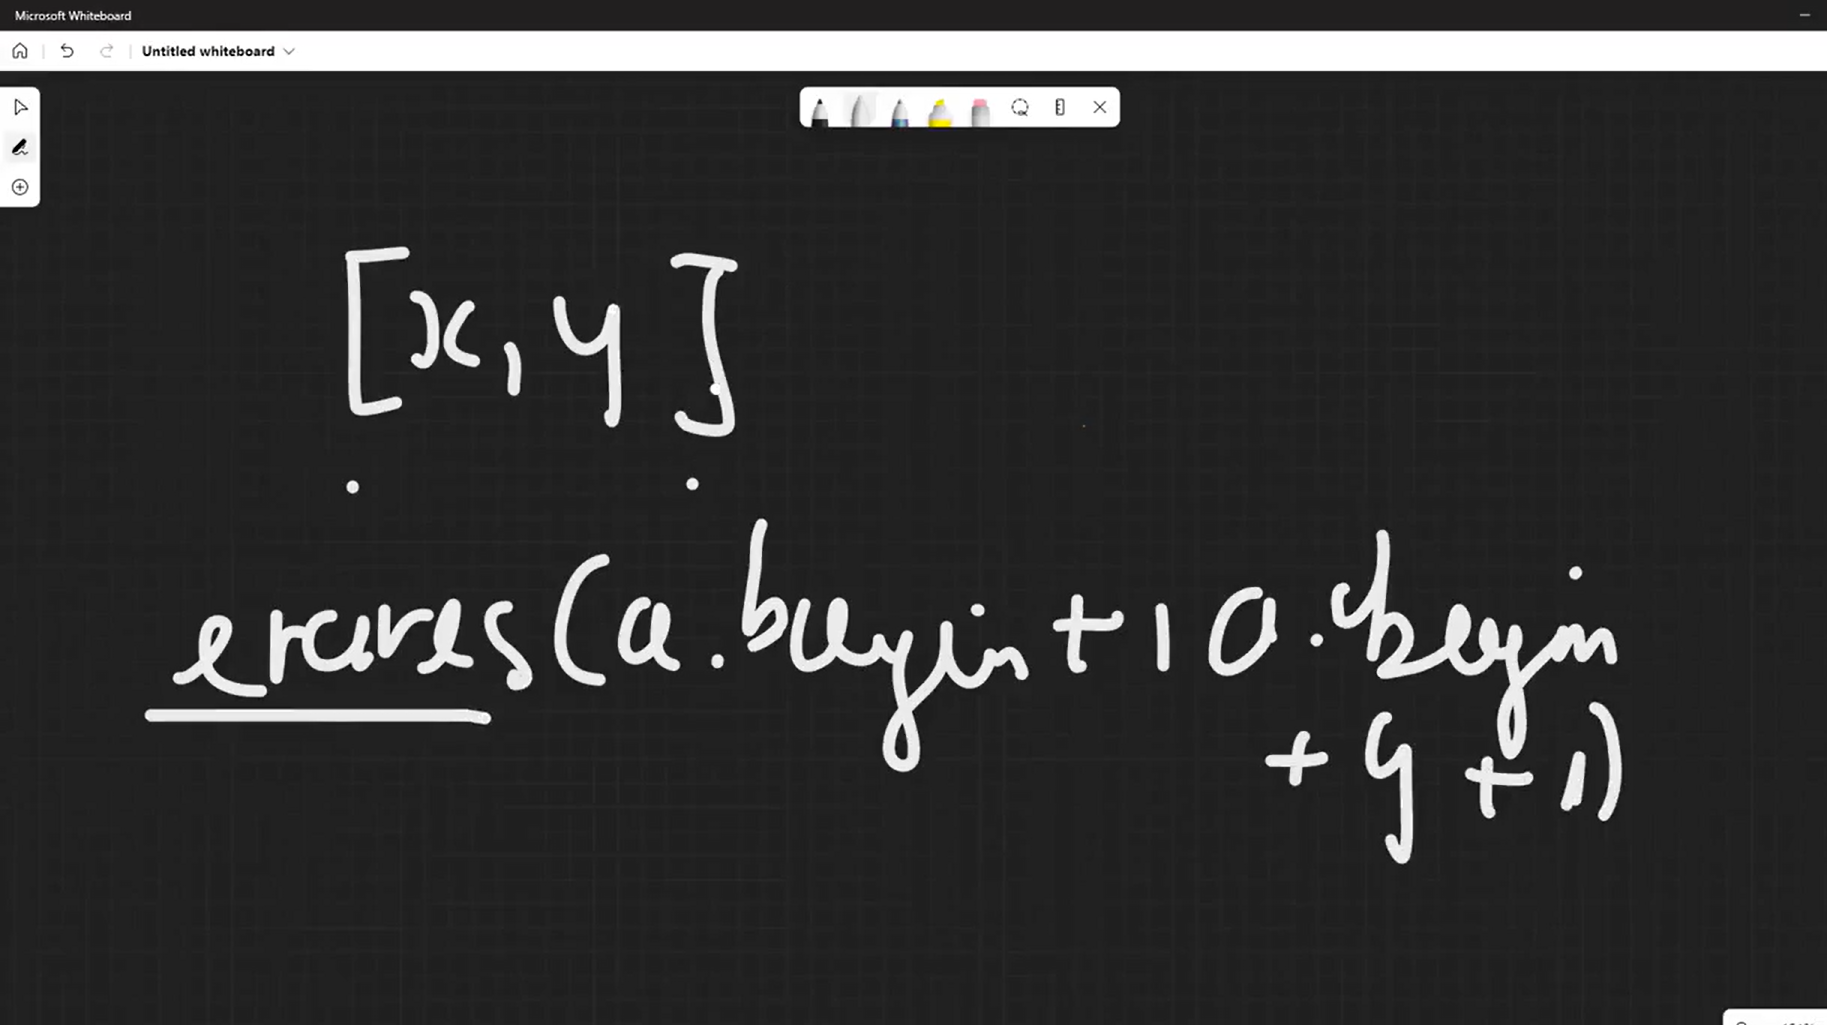 Microsoft Whiteboard
Untitled whiteboard
[x, y]
(a.begin + 1 a.begin
+ y + 1)